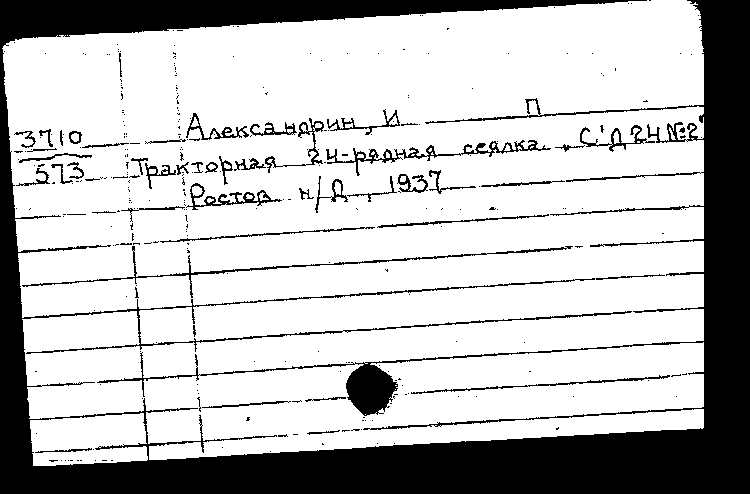 3710 Александрин, И П
573 Тракторная 24-рядная сеялка „С'Д 24 №2"
Ростов н/Д, 1937